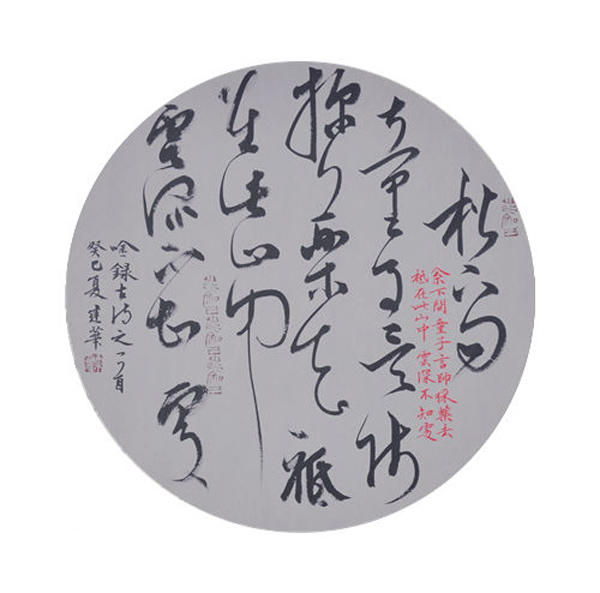 松下問
童子言師
採藥去祇
在此山中
雲深不知處
枀下問童子言師採藥去
祇在此山中 雲深不知處
唫録古詩之一首
癸巳夏建華